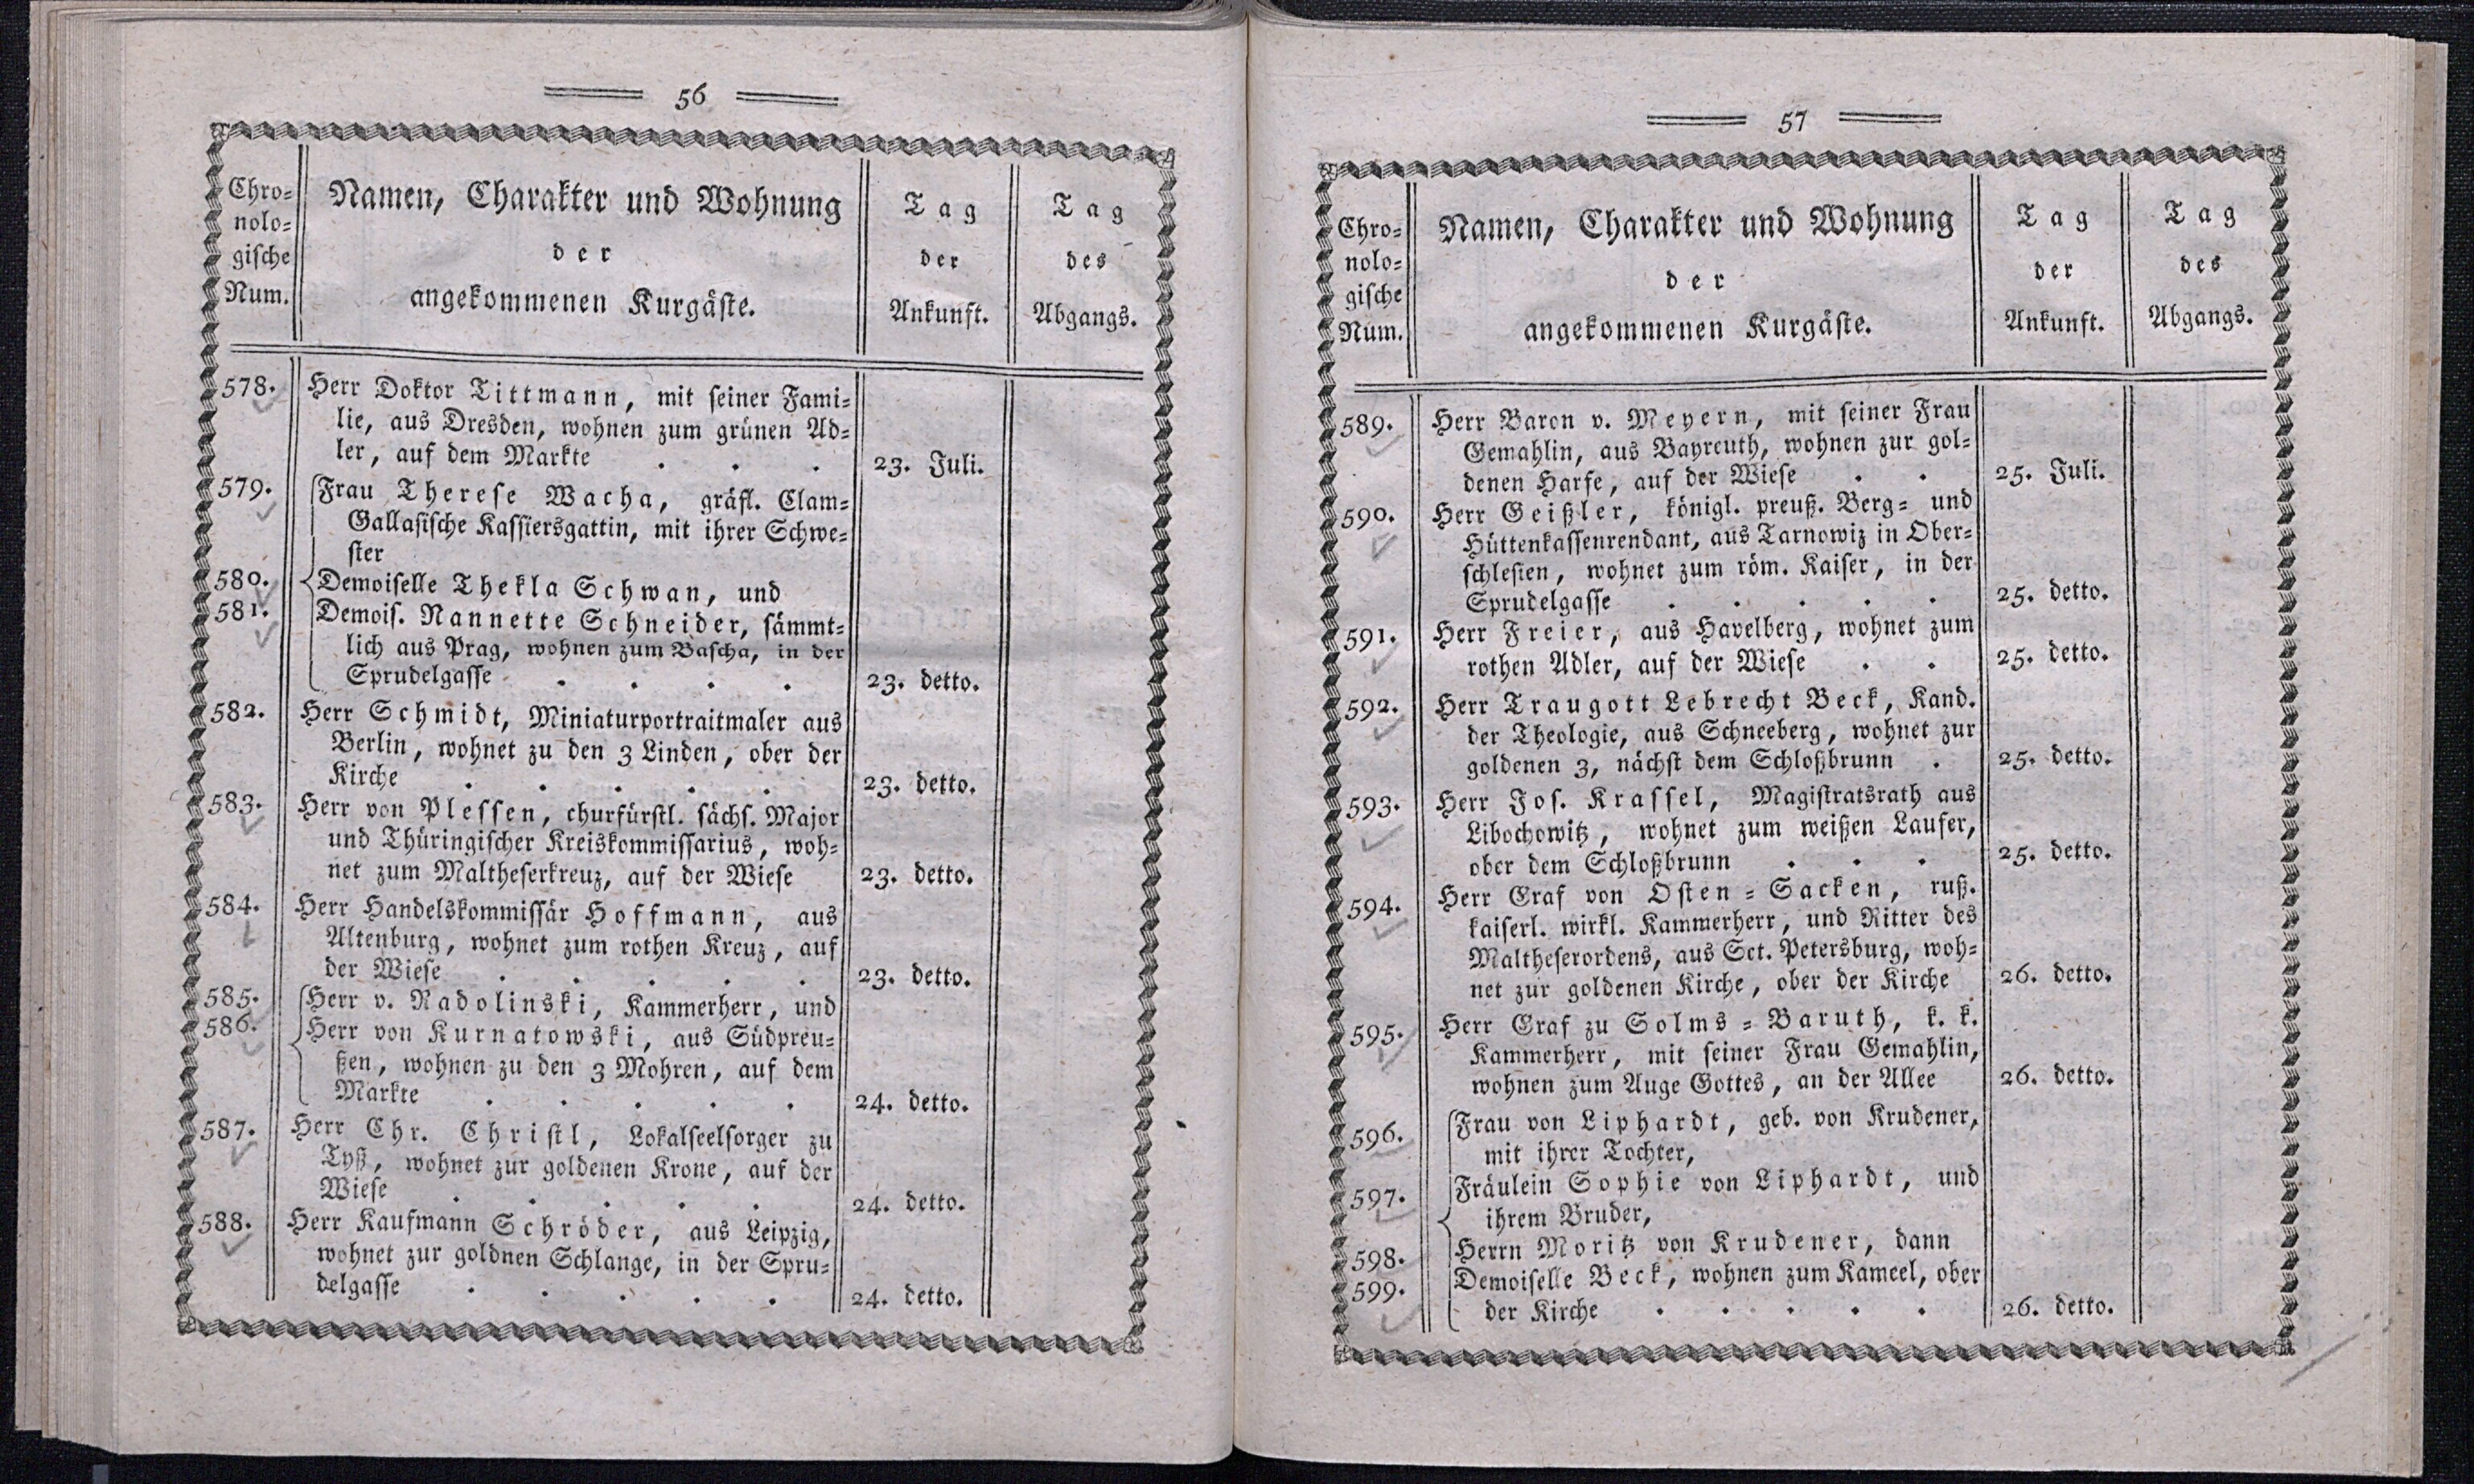 56
Chro-
nolo-
gische
Num.
Namen, Charakter und Wohnung
der
angekommenen Kurgäste.
Tag
der
Ankunft.
Tag
des
Abgangs.
578. Herr Doktor Tittmann, mit seiner Fami-
lie, aus Dresden, wohnen zum grünen Ad-
ler, auf dem Markte . . . 23. Juli.
579. Frau Therese Wacha, gräfl. Clam-
Gallasische Kassiersgattin, mit ihrer Schwe-
ster
580. Demoiselle Thekla Schwan, und
581. Demois. Nannette Schneider, sämmt-
lich aus Prag, wohnen zum Bascha, in der
Sprudelgasse . . . . 23. detto.
582. Herr Schmidt, Miniaturportraitmaler aus
Berlin, wohnet zu den 3 Linden, ober der
Kirche . . . . . 23. detto.
583. Herr von Plessen, churfürstl. sächs. Major
und Thüringischer Kreiskommissarius, woh-
net zum Maltheserkreuz, auf der Wiese 23. detto.
584. Herr Handelskommissär Hoffmann, aus
Altenburg, wohnet zum rothen Kreuz, auf
der Wiese . . . . . 23. detto.
585. Herr v. Radolinski, Kammerherr, und
586. Herr von Kurnatowski, aus Südpreu-
ßen, wohnen zu den 3 Mohren, auf dem
Markte . . . . . 24. detto.
587. Herr Chr. Christl, Lokalseelsorger zu
Tyß, wohnet zur goldenen Krone, auf der
Wiese . . . . . 24. detto.
588. Herr Kaufmann Schröder, aus Leipzig,
wohnet zur goldnen Schlange, in der Spru-
delgasse . . . . . 24. detto.
57
Chro-
nolo-
gische
Num.
Namen, Charakter und Wohnung
der
angekommenen Kurgäste.
Tag
der
Ankunft.
Tag
des
Abgangs.
589. Herr Baron v. Meyern, mit seiner Frau
Gemahlin, aus Bayreuth, wohnen zur gol-
denen Harfe, auf der Wiese . . 25. Juli.
590. Herr Geißler, königl. preuß. Berg- und
Hüttenkassenrendant, aus Tarnowiz in Ober-
schlesien, wohnet zum röm. Kaiser, in der
Sprudelgasse . . . . . 25. detto.
591. Herr Freier, aus Havelberg, wohnet zum
rothen Adler, auf der Wiese . . 25. detto.
592. Herr Traugott Lebrecht Beck, Kand.
der Theologie, aus Schneeberg, wohnet zur
goldenen 3, nächst dem Schloßbrunn . 25. detto.
593. Herr Jos. Krassel, Magistratsrath aus
Libochowitz, wohnet zum weißen Laufer,
ober dem Schloßbrunn . . . 25. detto.
594. Herr Graf von Osten-Sacken, ruß.
kaiserl. wirkl. Kammerherr, und Ritter des
Maltheserordens, aus Sct. Petersburg, woh-
net zur goldenen Kirche, ober der Kirche 26. detto.
595. Herr Graf zu Solms-Baruth, k. k.
Kammerherr, mit seiner Frau Gemahlin,
wohnen zum Auge Gottes, an der Allee 26. detto.
596. Frau von Liphardt, geb. von Krudener,
mit ihrer Tochter,
597. Fräulein Sophie von Liphardt, und
ihrem Bruder,
598. Herrn Moritz von Krudener, dann
599. Demoiselle Beck, wohnen zum Kameel, ober
der Kirche . . . . . 26. detto.